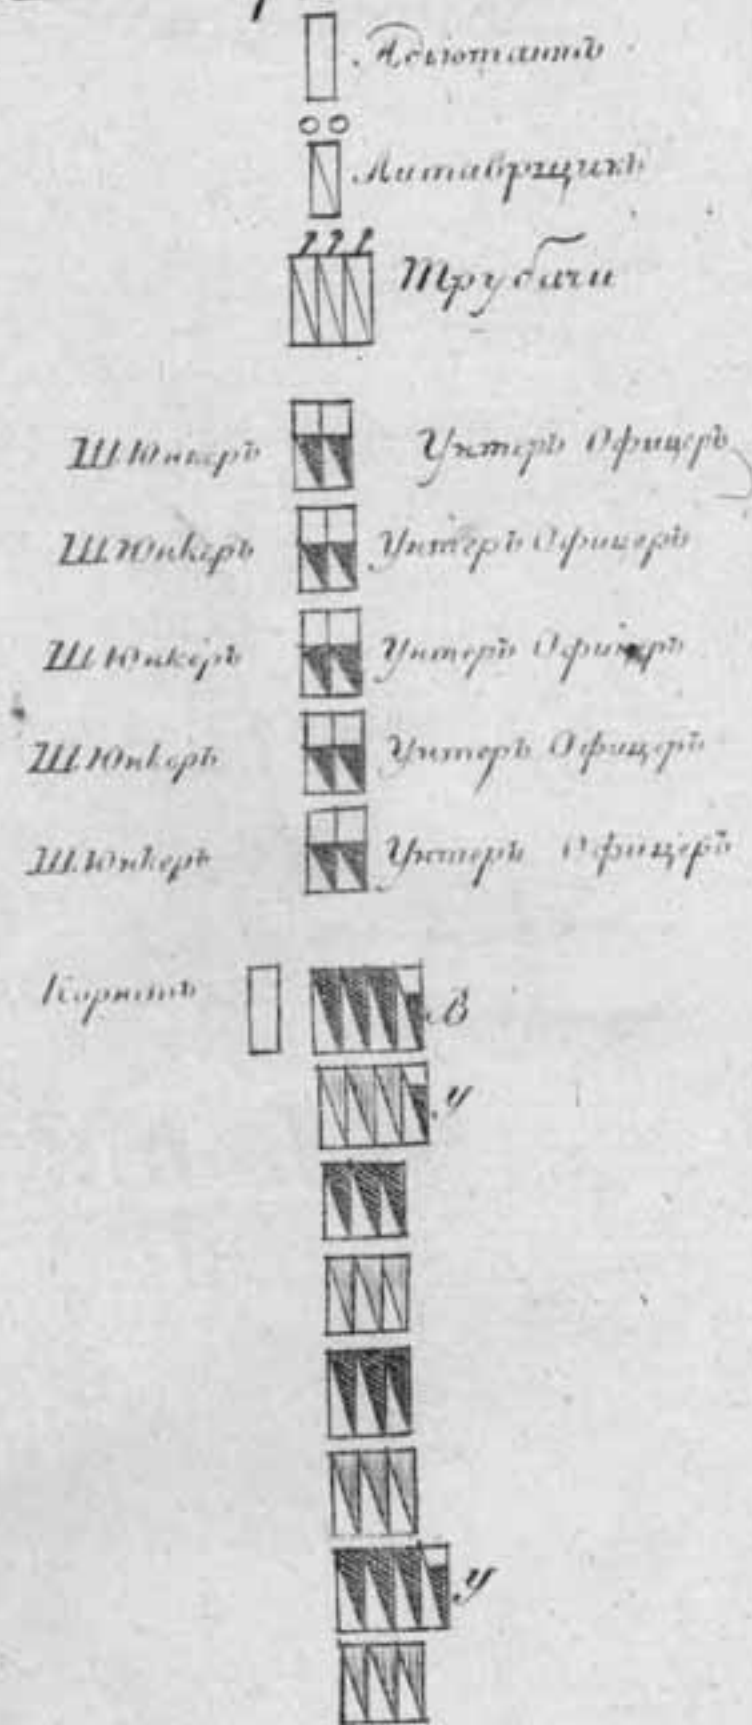 Адъютантъ
Литаврщикъ
Трубачи
Ш. Юнкеръ Унтеръ Офицеръ
Ш. Юнкеръ Унтеръ Офицеръ
Ш. Юнкеръ Унтеръ Офицеръ
Ш. Юнкеръ Унтеръ Офицеръ
Ш. Юнкеръ Унтеръ Офицеръ
Корнетъ В
У
У